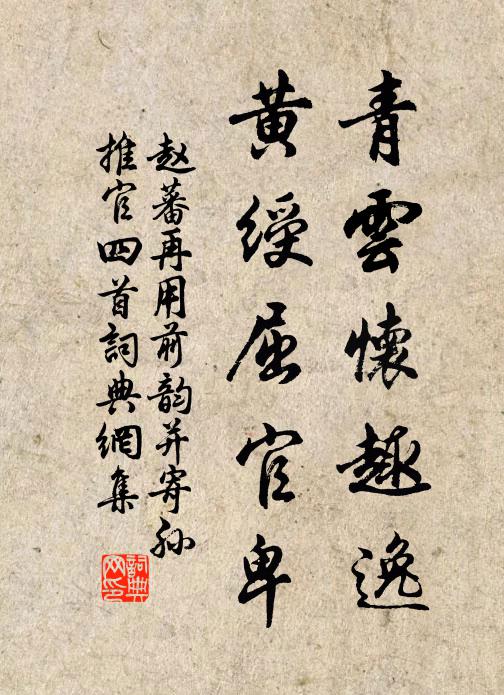 青雲懷趣逸
黄綬屈官卑
赵蕃再用前韵并寄孙
推官四首詞典網集
詞典
网印